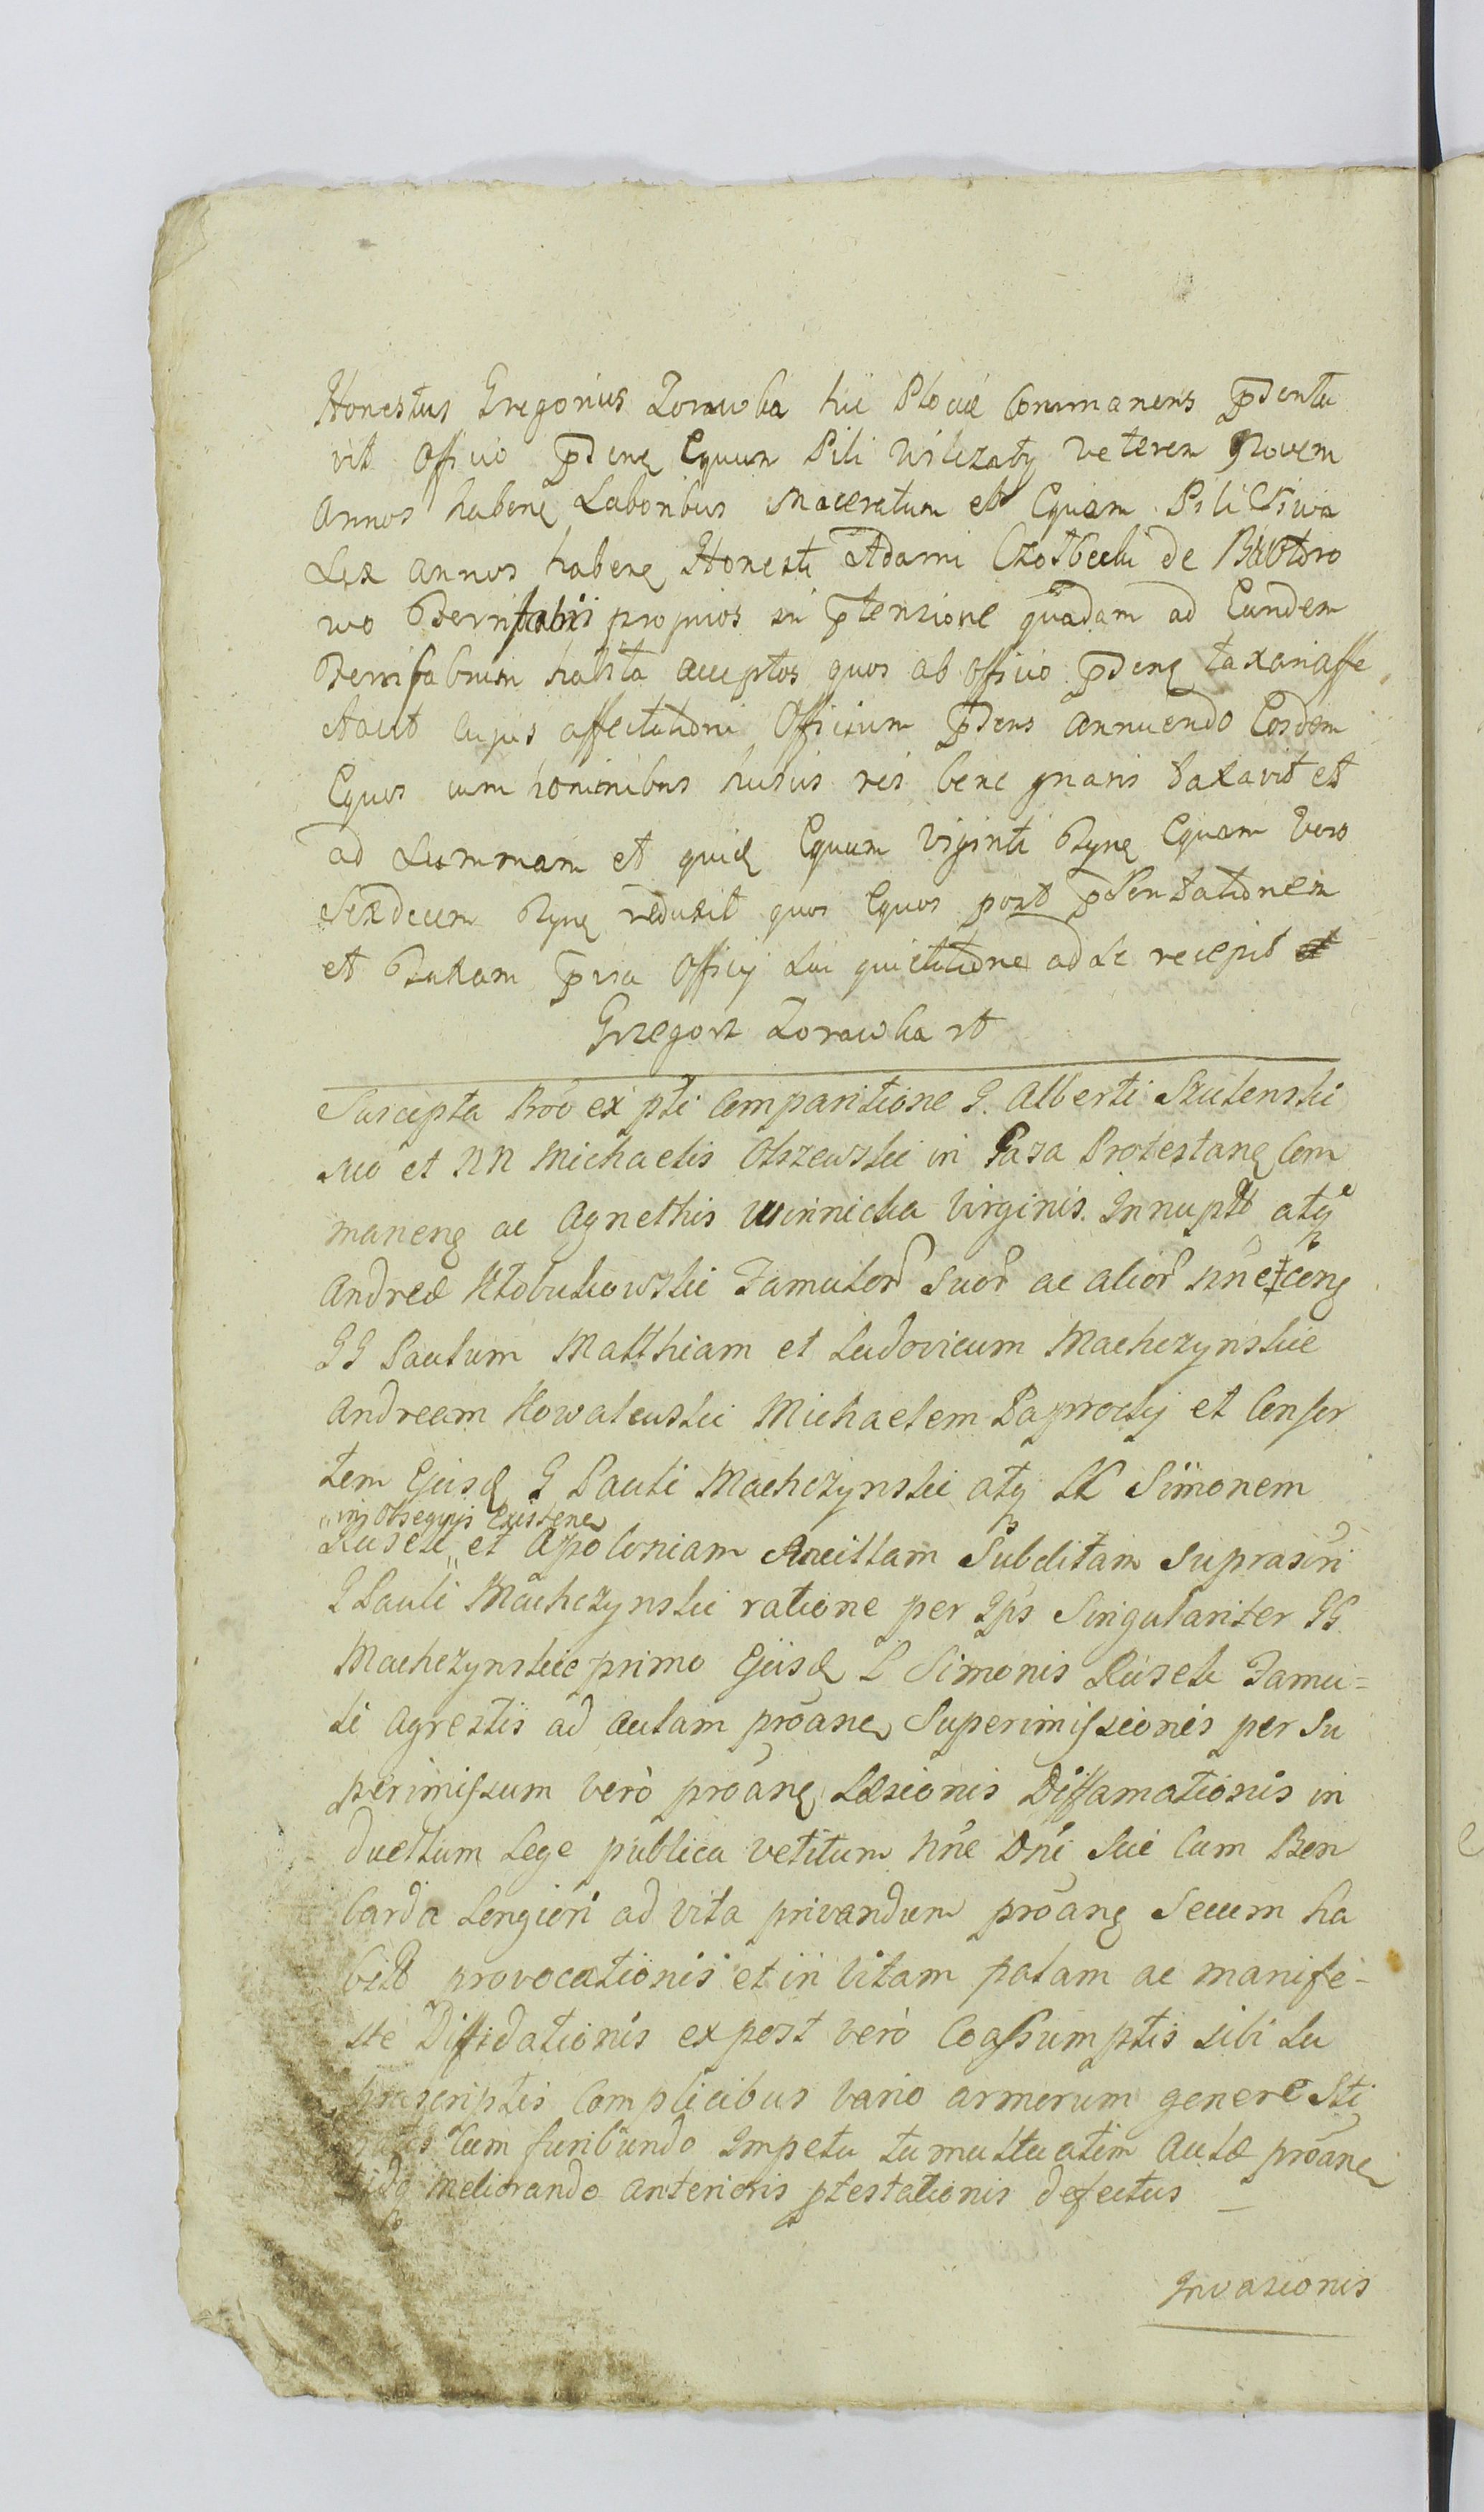 Honestus Gregorius Zorawka hic Plociæ Commanens p̄denta
vit Officio p̄denɋ Equum Pili Wilczaty veterem Novem
annos habenɋ Laboribus maceratum et Equam Pili Siwa
Sex annos habenɋ Honesti Adami Czosbecki de
wo Ferrifabri proprios in p̄tensione quadam ad Eundem
Ferrifabrum habita acceptos quos ab Officio p̄denɋ taxari affe
ctavit cujus affectationi Officium p̄dens annuendo Eosdem
Equos cum hominibus hujus rei bene gnaris taxavit et
ad Summam et quidɋ Equum Viginti Tynɋ Equam Vero
Sexdecem Tynɋ reduxit quos Equos post p̄sentationem
et Taxam p̄via Officij sui quietatione ad se recepit
Grzegorz Zorawka rt
Suscepta Pro͠o ex p̄ti Comparitione G. Alberti Szulenski
suo et NN Michaelis Olszewski in Gasa Protestanɋ Com
manenɋ ac Agnethis Winnicka Virginis Innuptæ atq̨
Andreæ Kłobukowski Famulor͠ suor͠ ac alior͠ nn͠e cenɋ
GG Paulum Matthiam et Ludovicum Machczynskie
Andream Kowalewski Michaelem Paprocky et Consor
tem Ejusdɋ G Pauli Machczynski atq̨ Simonem
in Obsequijs Existenɋ
Kusek et Apoloniam Ancillam Subditam suprascri͠
G Pauli Machczynski ratione per Ip͠s Singulariter GG
Machczynskie primo Ejusdɋ L Simonis Kusek Famu=
li agrestis ad aulam pro͠anɋ Superimissionis per Su
perimissum verò pro͠anɋ Læsionis Diffamationis in
duellum Lege publica vetitum nn͠e Dn͠i Sui Cum Ben
Carda Longiori ad vita privandum pro͠anɋ Secum ha
bito provocationis et in Vitam palam ac manife-
ste Diffidationis ex post verò Coassumptis sibi su
prascriptis Complicibus vario armorum genere Sti
patis Cum furibundo Impetu tumultuatim aulæ pro͠anɋ
meliorando anterioris p̄testationis defectus
Invasionis